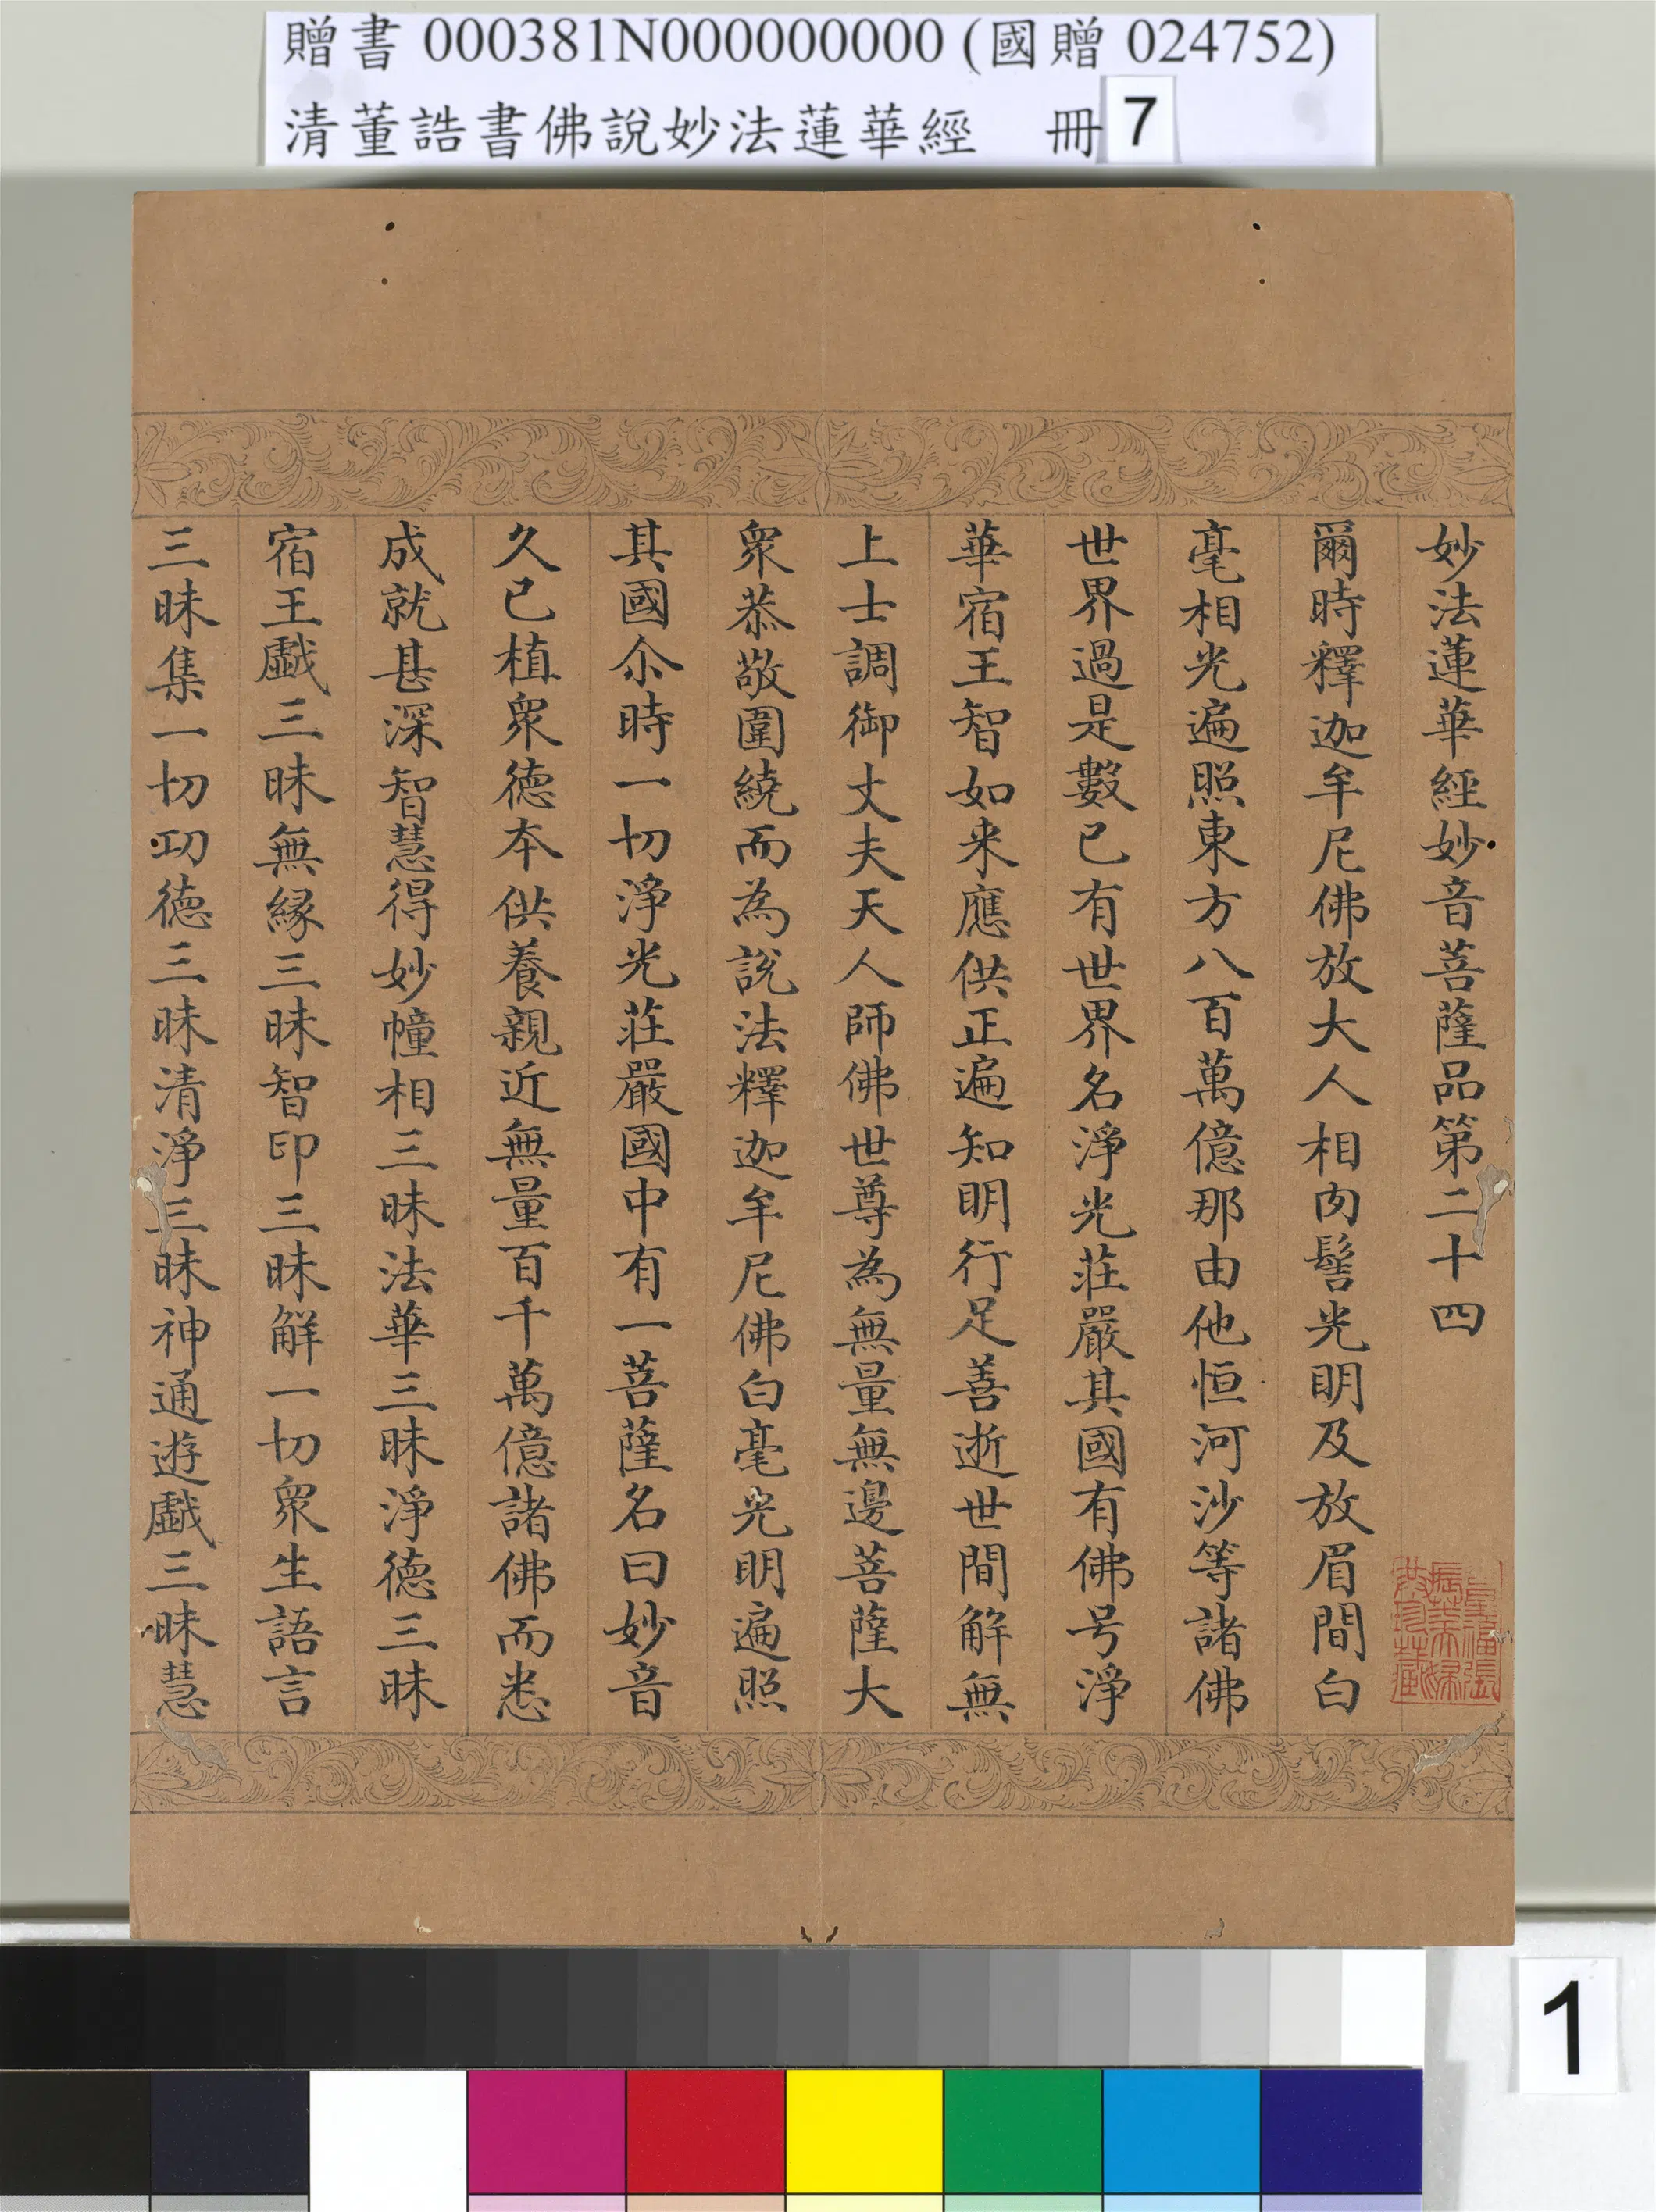 贈書 000381N000000000 (國贈 024752)
清董誥書佛說妙法蓮華經 冊 7
妙法蓮華經妙音菩薩品第二十四
爾時釋迦牟尼佛放大人相肉髻光明及放眉間白
毫相光遍照東方八百萬億那由他恒河沙等諸佛
世界過是數已有世界名淨光莊嚴其國有佛号淨
華宿王智如来應供正遍知明行足善逝世間解無
上士調御丈夫天人師佛世尊為無量無邊菩薩大
衆恭敬圍繞而為說法釋迦牟尼佛白毫光明遍照
其國尒時一切淨光莊嚴國中有一菩薩名曰妙音
久已植衆德本供養親近無量百千萬億諸佛而悉
成就甚深智慧得妙幢相三昧法華三昧淨德三昧
宿王戲三昧無緣三昧智印三昧解一切衆生語言
三昧集一切功德三昧清淨三昧神通遊戲三昧慧
1